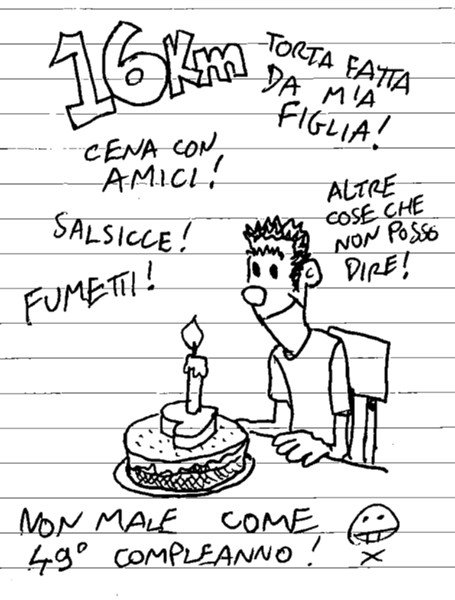 16Km
TORTA FATTA
DA MIA
FIGLIA!
CENA CON
AMICI!
ALTRE
COSE CHE
NON POSSO
DIRE!
SALSICCE!
FUMETTI!
NON MALE COME
49° COMPLEANNO!